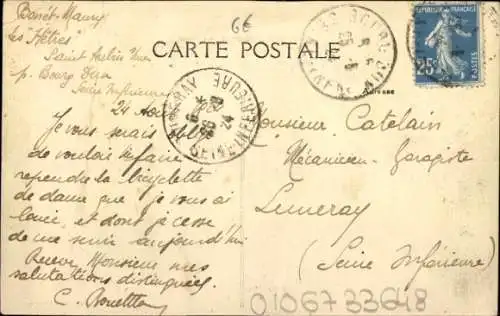 Bonét-Maury
les "Hêtres"
Saint Aubin
p. Bourg Dun
Seine Inférieure
66
CARTE POSTALE
RÉPUBLIQUE FRANÇAISE
25c
POSTES
Adresse
24 Août
Je vous serais obligé
de vouloir
reprendre la bicyclette
de dame que je vous ai
louée, et dont je cesse
de me servir aujourd'hui
Recevez Monsieur mes
salutations distinguées.
Monsieur Catelain
Mécanicien-Garagiste
Luneray
(Seine Inférieure)
LUNERAY
SEINE INFERIEURE
24
0106733648